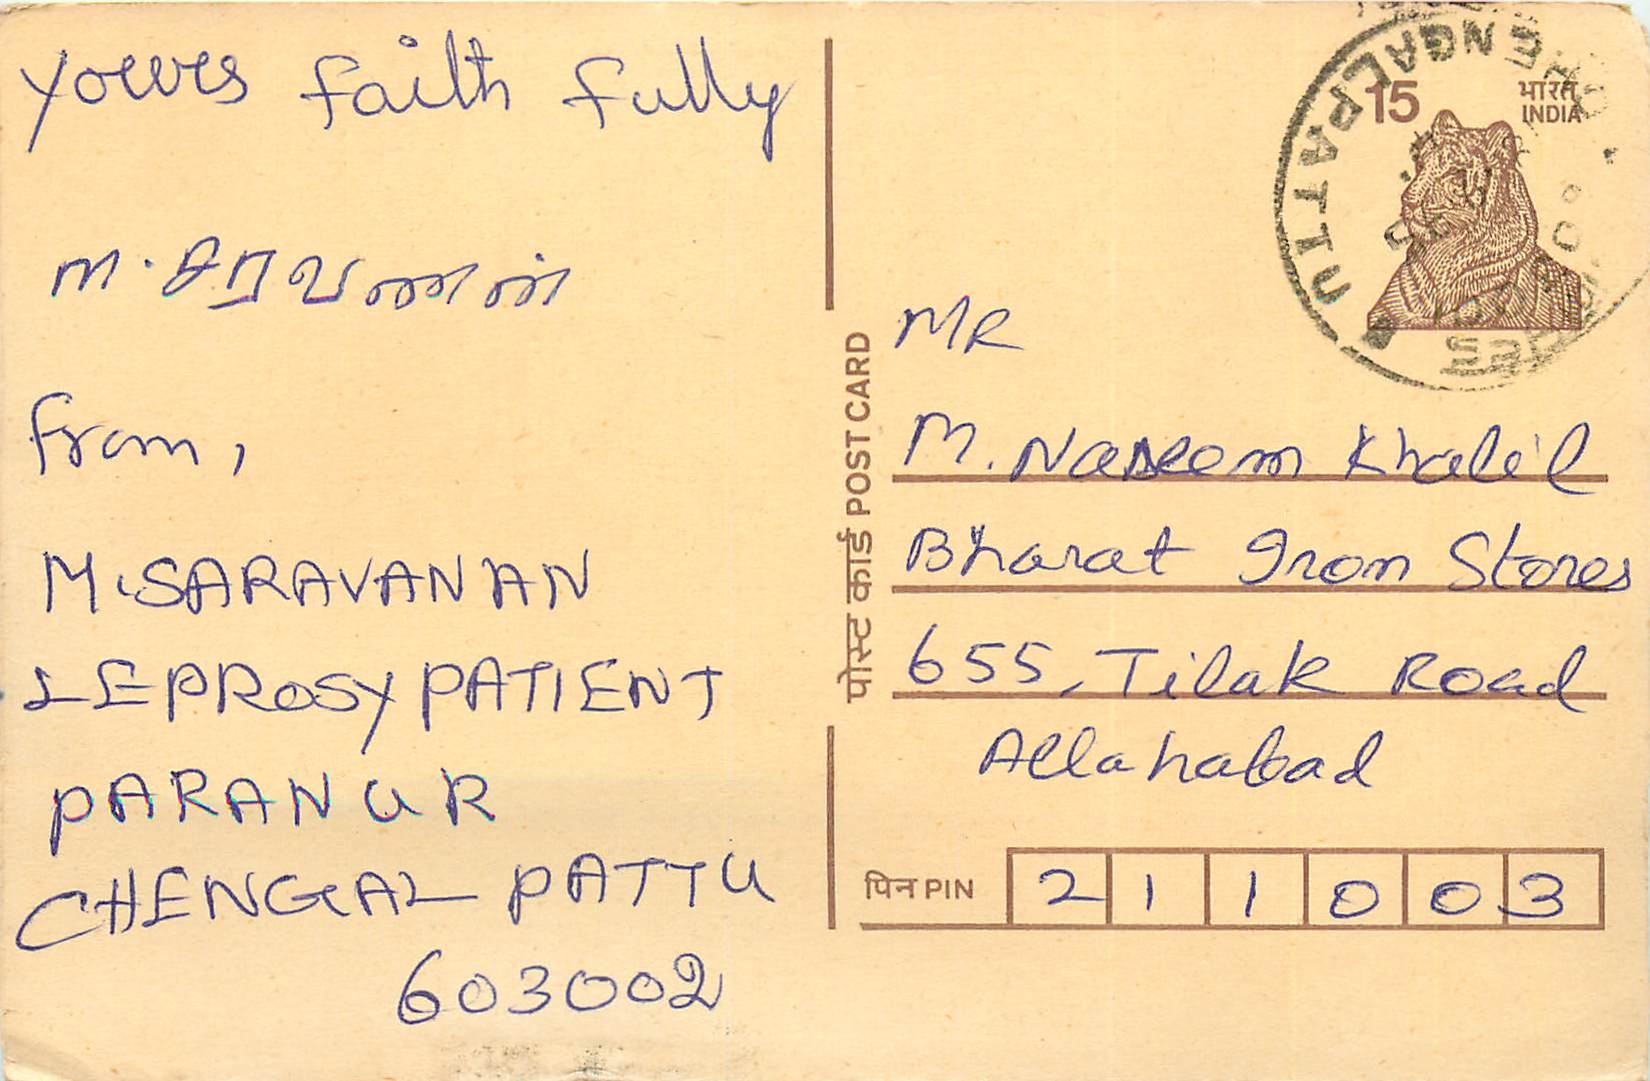 yowrs faith fully
m. சரவணன்
from,
M. SARAVANAN
LEPROSY PATIENT
PARANUR
CHENGAL PATTU
603002
पोस्ट कार्ड POST CARD
CHENGALPATTU
15
भारत
INDIA
MR
M. Naseem Khalil
Bharat Iron Stores
655, Tilak Road
Allahabad
पिन PIN 211003